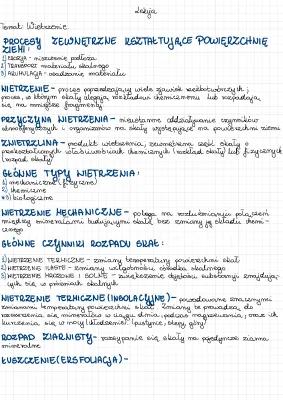 Lekcja
Temat: Wietrzenie.
PROCESY ZEWNĘTRZNE KSZTAŁTUJĄCE POWIERZCHNIĘ
ZIEMI:
1) EROZJA - niszczenie podłoża
2) TRANSPORT materiału skalnego
3) AKUMULACJA - osadzanie materiału
WIETRZENIE - proces poprzedzający wiele zjawisk rzeźbotwórczych;
proces, w którym skały ulegają rozkładowi chemicznemu lub rozpadają
się na mniejsze fragmenty
PRZYCZYNA WIETRZENIA - nieustanne oddziaływanie czynników
atmosferycznych i organizmów na skały występujące na powierzchni ziemi
ZWIETRZELINA - produkt wietrzenia, zewnętrzna część skały o
przekształconych właściwościach chemicznych (rozkład skały) lub fizycznych
(rozpad skały)
GŁÓWNE TYPY WIETRZENIA:
1) mechaniczne (fizyczne)
2) chemiczne
*3) biologiczne
WIETRZENIE MECHANICZNE - polega na rozluźnianiu połączeń
między minerałami budującymi skałę bez zmiany jej składu chemi-
cznego
GŁÓWNE CZYNNIKI ROZPADU SKAŁ:
1) WIETRZENIE TERMICZNE - zmiany temperatury powierzchni skał
2) WIETRZENIE ILASTE - zmiany wilgotności ośrodka skalnego
3) WIETRZENIE MROZOWE I SOLNE - zwiększenie objętości substancji znajdują-
cych się w próżniach skalnych
WIETRZENIE TERMICZNE (INSOLACYJNE) - powodowane znacznymi
zmianami temperatury powierzchni skał. Zmiany te prowadzą do
rozszerzania się minerałów w ciągu dnia, podczas nagrzewania, oraz ich
kurczenia się w nocy (chłodzenie). (pustynie, stepy, góry)
ROZPAD ZIARNISTY - rozsypanie się skały na pojedyncze ziarna
mineralne
ŁUSZCZENIE (EKSFOLIACJA) -